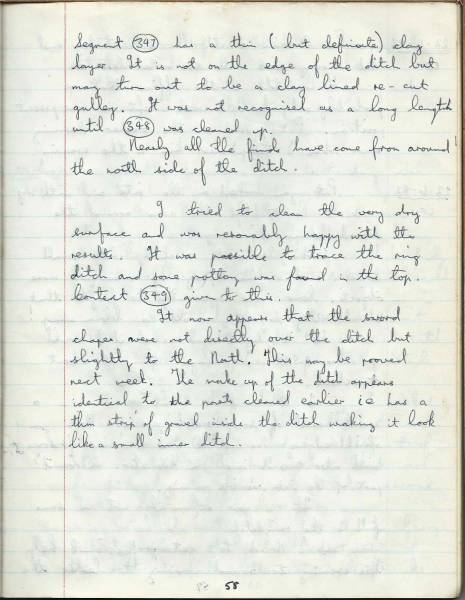 Segment (347) has a thin (but definate) clay
layer. It is not on the edge of the ditch but
may turn out to be a clay lined re-cut
gulley. It was not recognised as a long length
until (348) was cleaned up.
Nearly all the finds have come from around
the north side of the ditch.
I tried to clean the very dry
surface and was resonably happy with the
results. It was possible to trace the ring
ditch and some pottery was found in the top.
Context (349) given to this.
It now appears that the sword
chapes were not directly over the ditch but
slightly to the North. This may be prooved
next week. The make up of the ditch appears
identical to the parts cleaned earlier ie has a
thin strip of gravel inside the ditch making it look
like a small inner ditch.
58